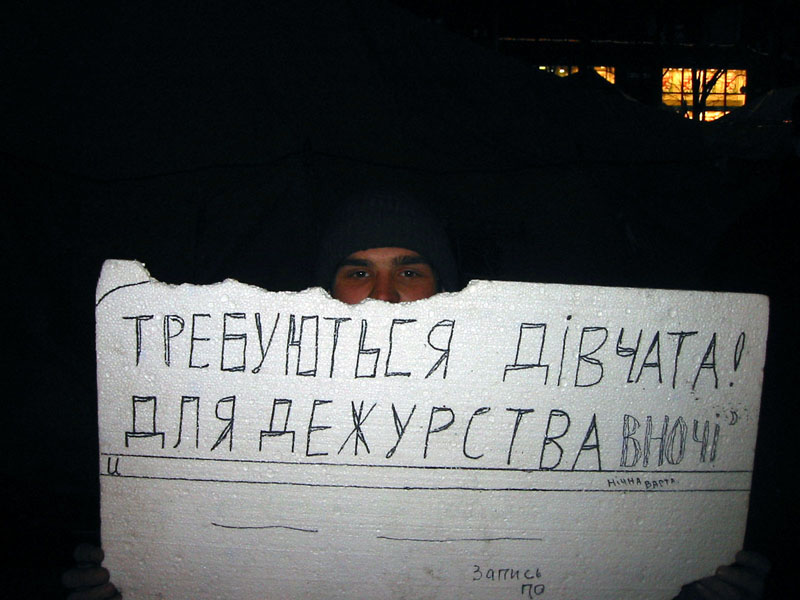 ТРЕБУЮТЬСЯ ДІВЧАТА!
ДЛЯ ДЕЖУРСТВА ВНОЧІ
Ц
НІЧНА ВАРТА
Запись
по